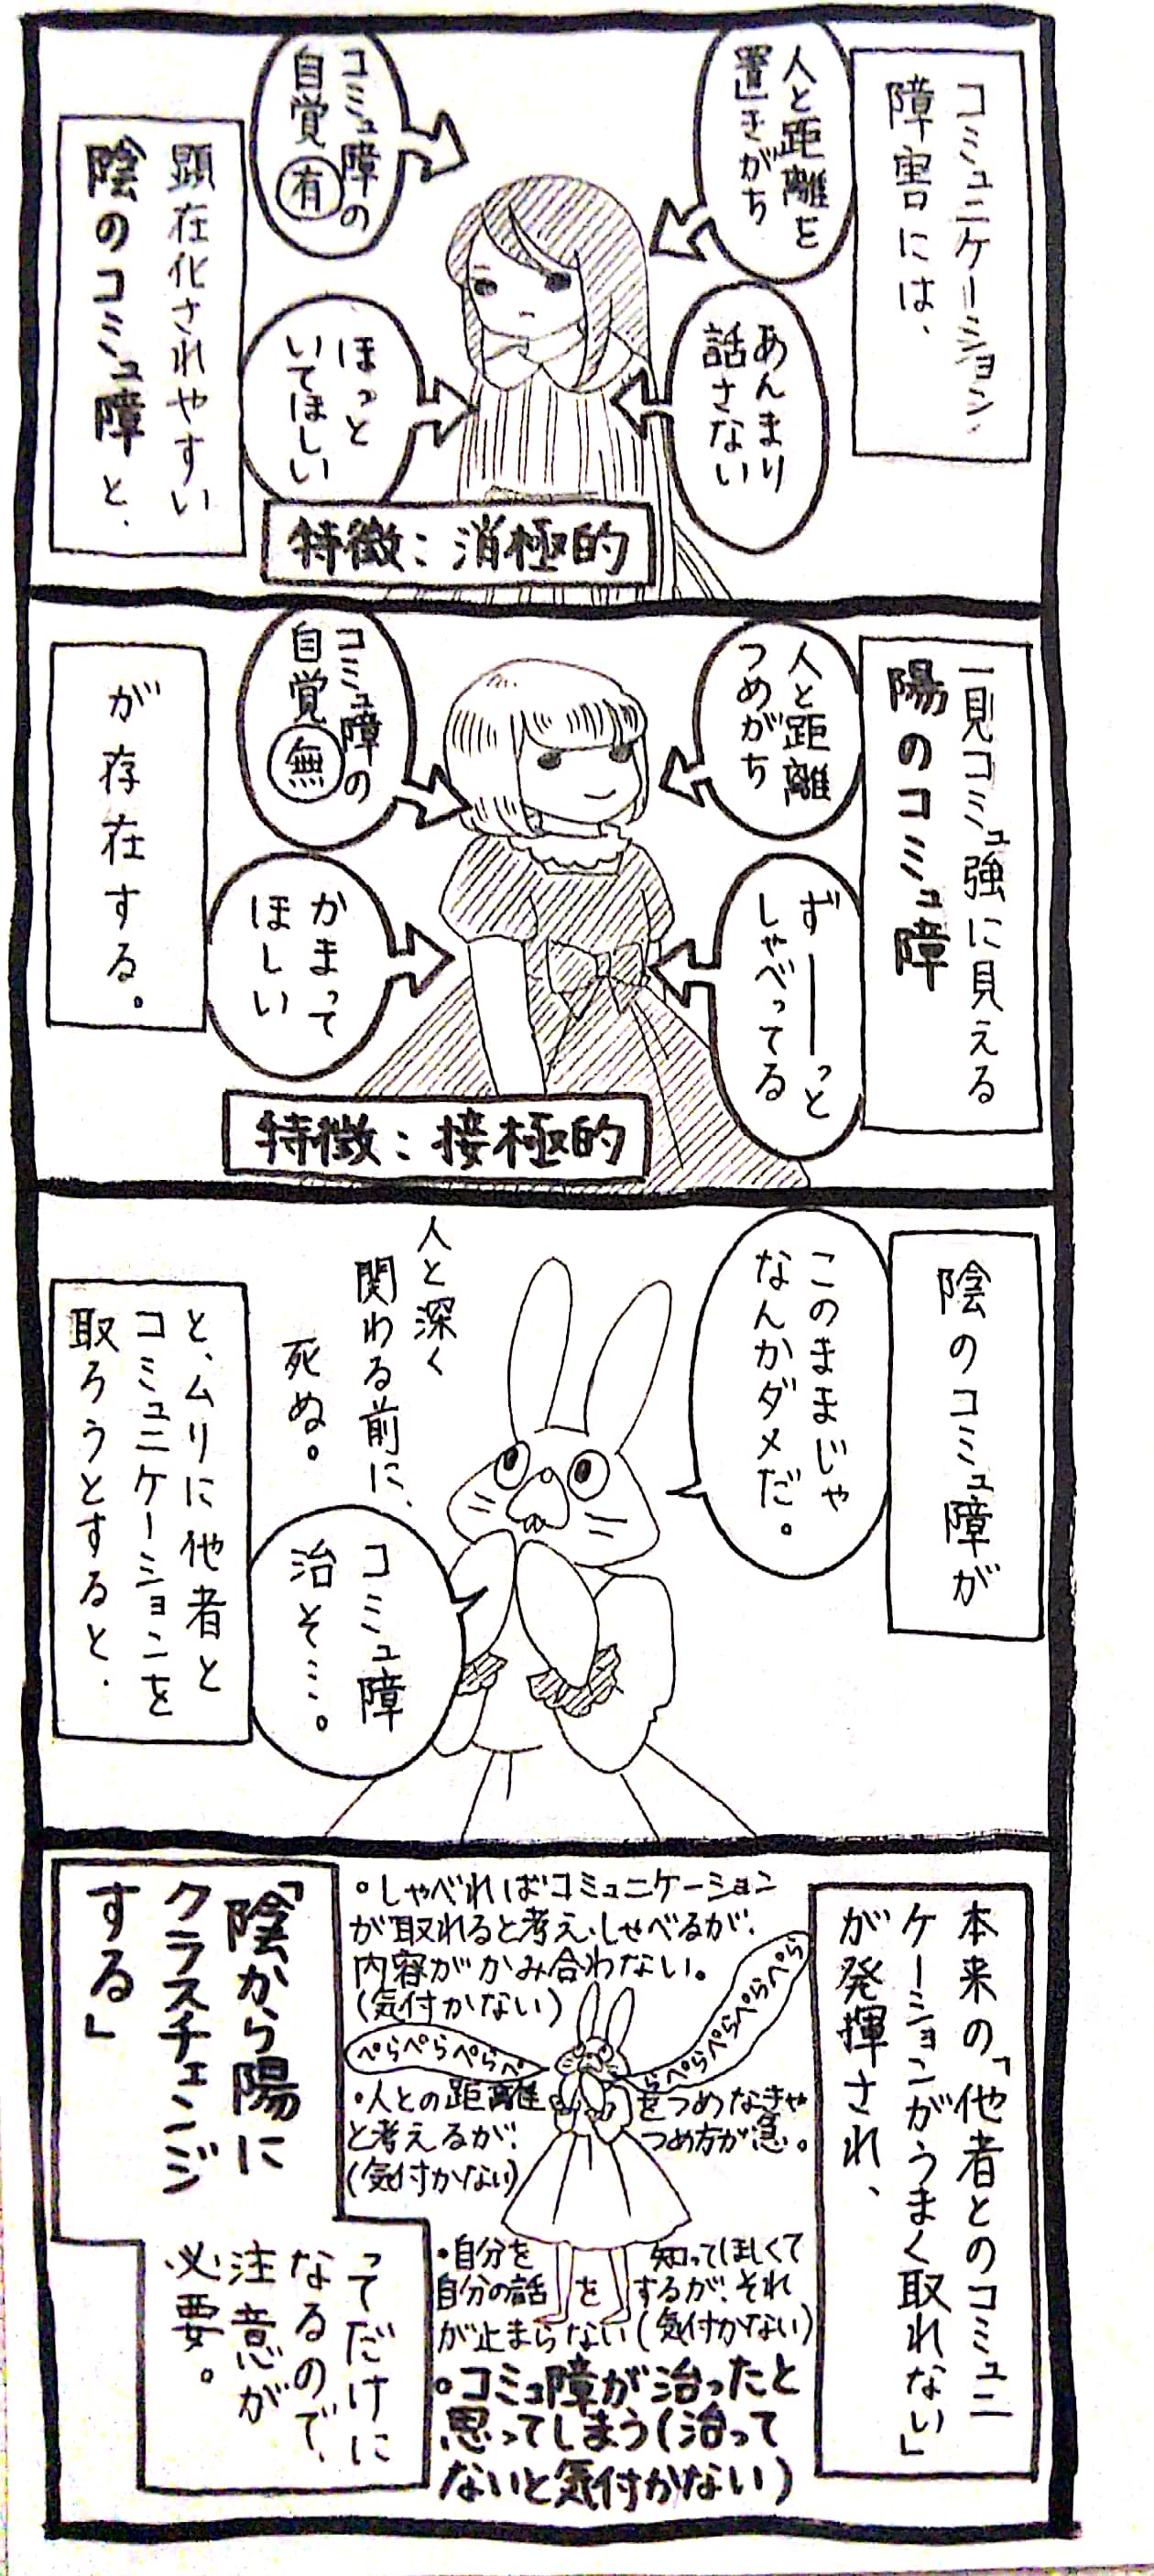 コミュニケーション
障害には、
人と距離を
置きがち
あんまり
話さない
コミュ障の
自覚有
ほっと
いてほしい
特徴：消極的
顕在化されやすい
陰のコミュ障と、
一見コミュ強に見える
陽のコミュ障
人と距離
つめがち
ずーーっと
しゃべってる
コミュ障の
自覚無
かまって
ほしい
特徴：接極的
が存在する。
陰のコミュ障が
このままじゃ
なんかダメだ。
人と深く
関わる前に、
死ぬ。
コミュ障
治そ…。
と、ムリに他者と
コミュニケーションを
取ろうとすると、
本来の「他者とのコミュニ
ケーションがうまく取れない」
が発揮され、
•しゃべればコミュニケーション
が取れると考え、しゃべるが、
内容がかみ合わない。
(気付かない)
ぺらぺらぺらぺ
らぺらぺらぺらぺら
•人との距離をつめなきゃ
と考えるが、つめ方が急。
(気付かない)
•自分を知ってほしくて
自分の話をするが、それ
が止まらない(気付かない)
•コミュ障が治ったと
思ってしまう(治って
ないと気付かない)
「陰から陽に
クラスチェンジ
する」
ってだけに
なるので、
注意が
必要。